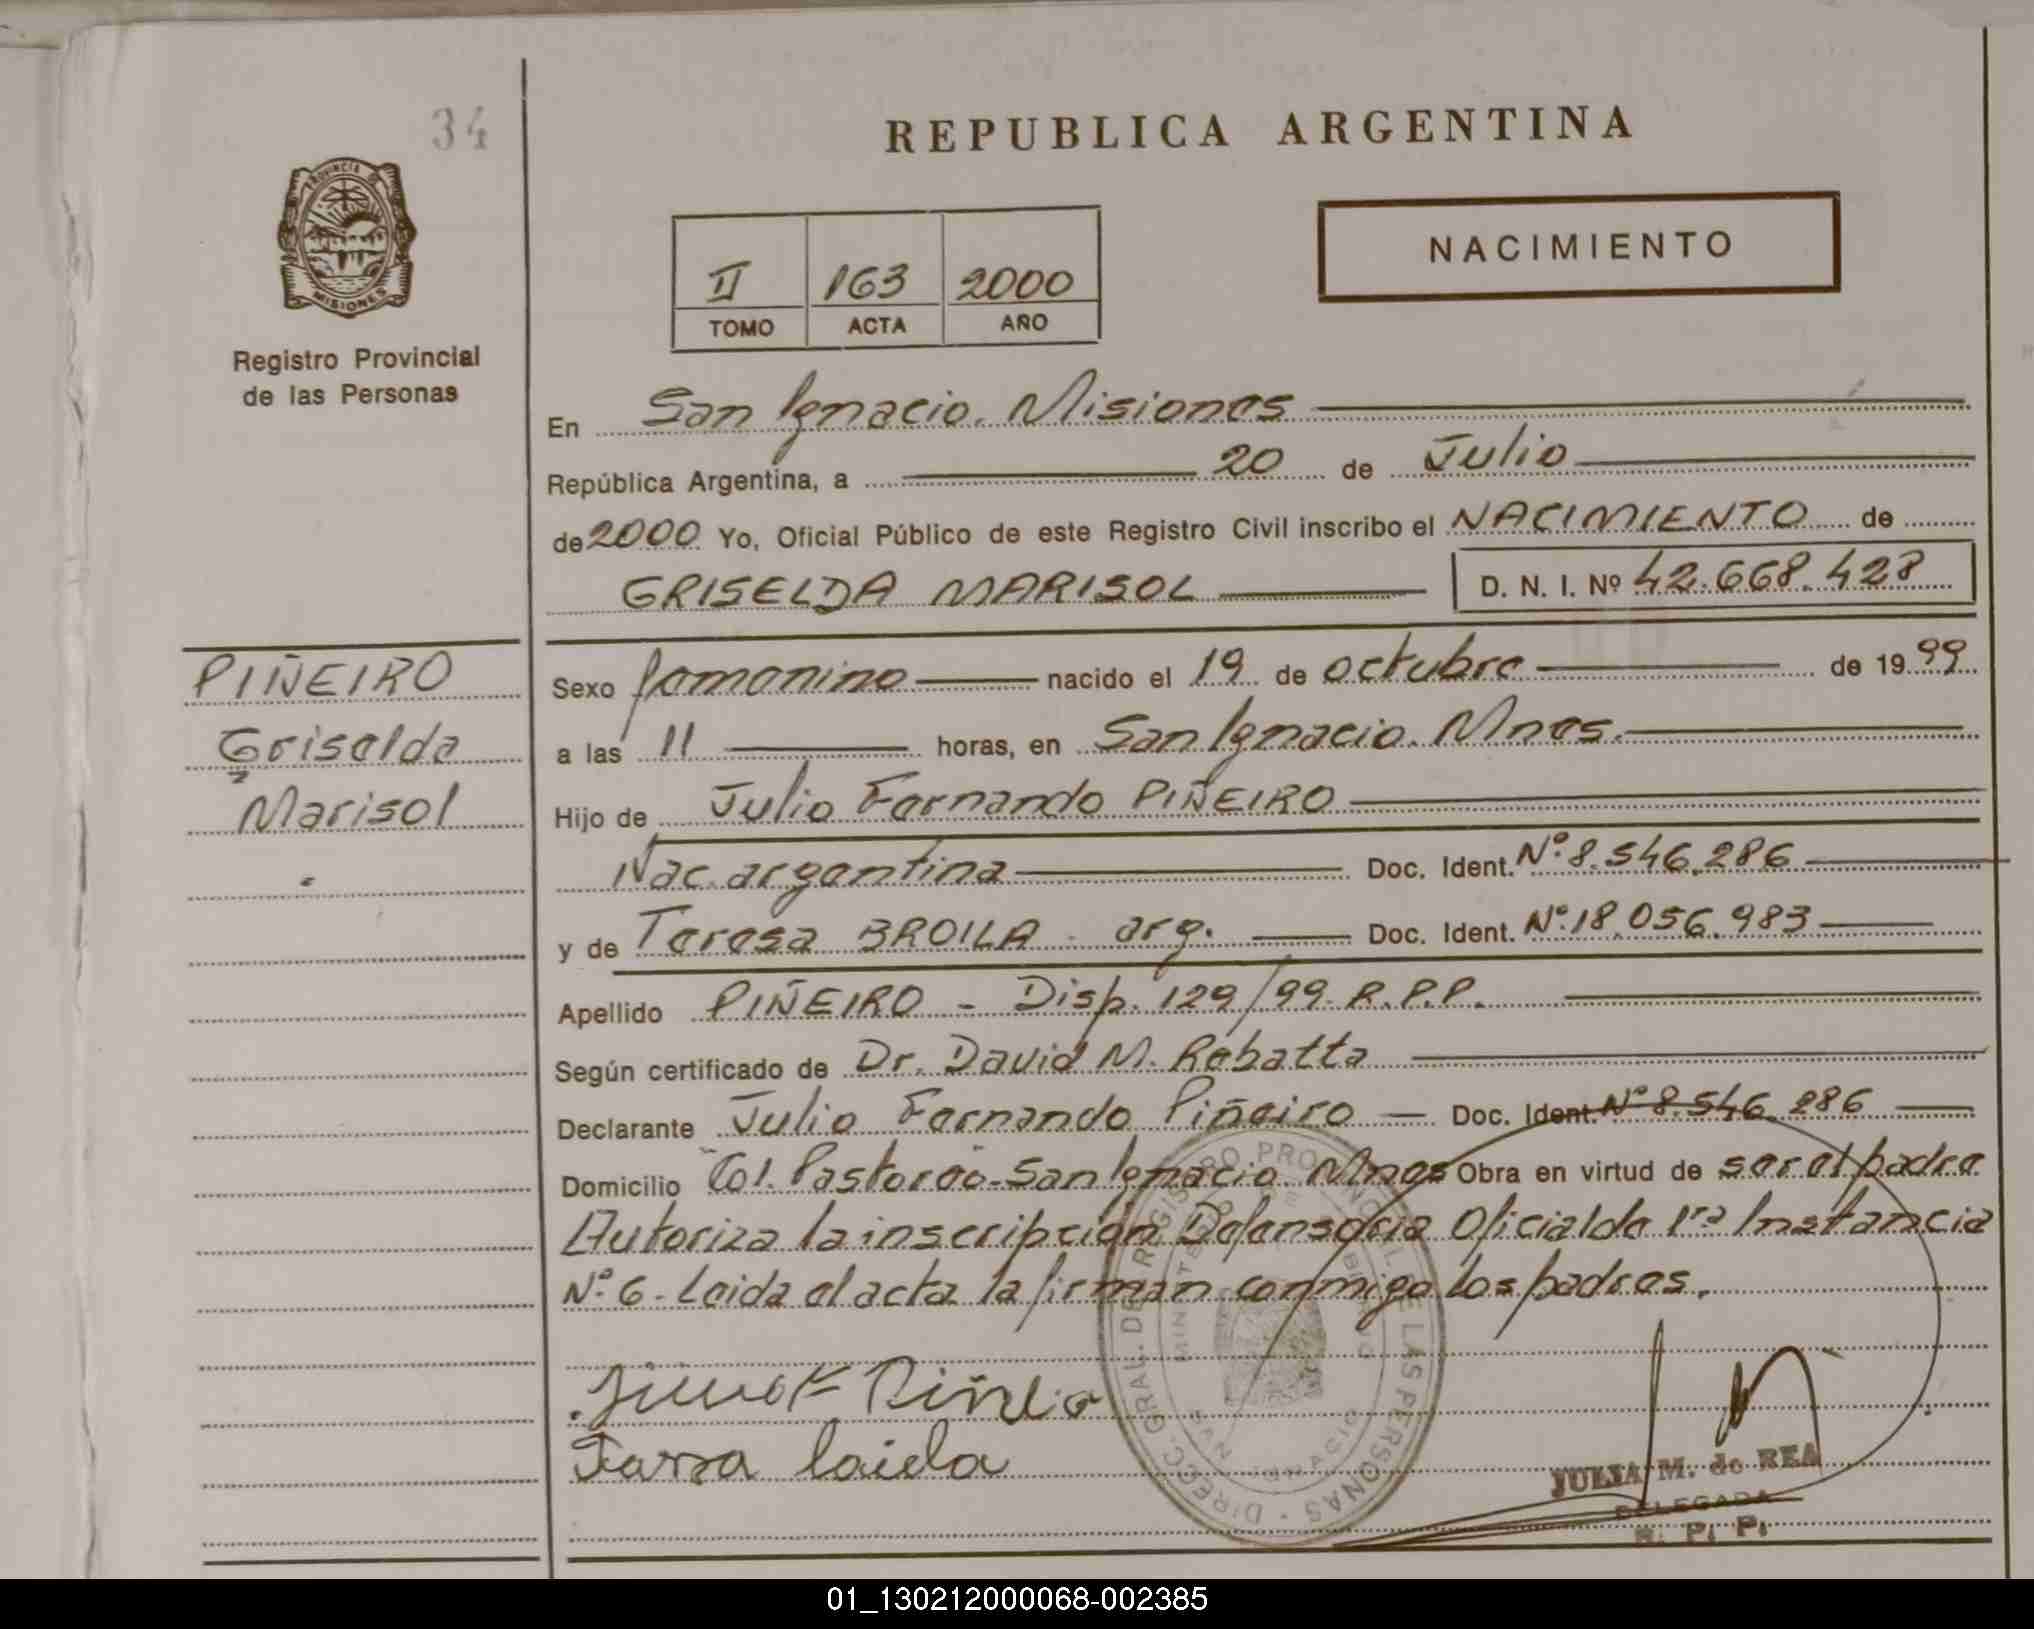 34
REPUBLICA ARGENTINA
PROVINCIA DE
MISIONES
Registro Provincial
de las Personas
NACIMIENTO
II 163 2000
TOMO ACTA AÑO
En San Ignacio. Misiones
República Argentina, a 20 de Julio
de 2000 Yo, Oficial Público de este Registro Civil inscribo el NACIMIENTO de
GRISELDA MARISOL D. N. I. Nº 42.668.428
PIÑEIRO
Griselda
Marisol
Sexo femenino nacido el 19 de octubre de 1999
a las 11 horas, en San Ignacio. Mnes.
Hijo de Julio Fernando PIÑEIRO
Nac. argentina Doc. Ident. Nº 8.546.286
y de Teresa BROILA - arg. Doc. Ident. Nº 18.056.983
Apellido PIÑEIRO - Disp. 129/99 R.P.P.
Según certificado de Dr. David M. Rebatta
Declarante Julio Fernando Piñeiro Doc. Ident. Nº 8.546.286
Domicilio Col. Pastoreo - San Ignacio Mnes Obra en virtud de ser el padre
Autoriza la inscripción Defensoría Oficial de 1ra Instancia
Nº 6 - Leida el acta la firman conmigo los padres.
DIRECC. GRAL. DEL REGISTRO PROVINCIAL DE LAS PERSONAS
SAN IGNACIO
JULIA M. de REA
DELEGADA
R. P. P.
01_130212000068-002385